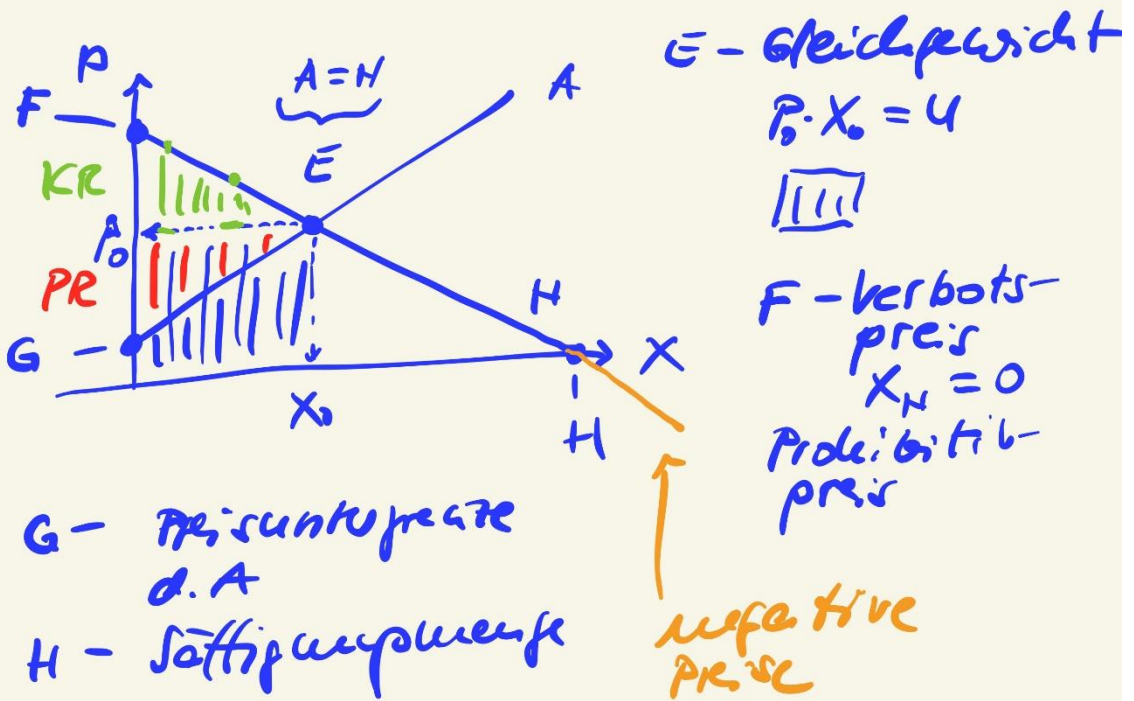 P
F
A = N
A
E
KR
P₀
PR
G
H
X
X₀
H
E - Gleichgewicht
P₀ · X₀ = U
F - Verbots-
preis
X_N = 0
Prohibitiv-
preis
G - Preisuntergrenze
d. A
H - Sättigungsmenge
negative
Preise